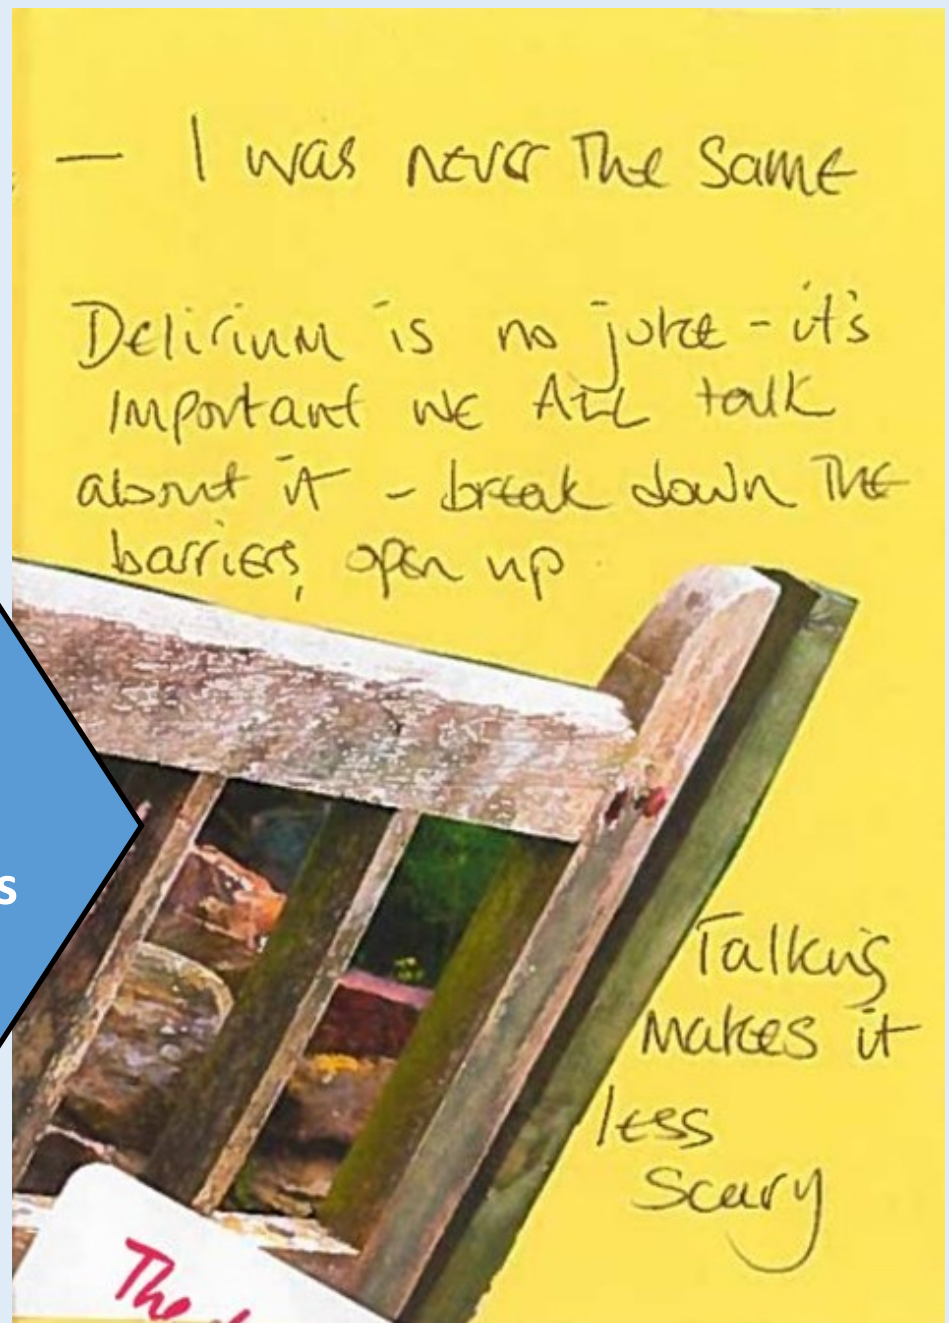 — I was never The Same
Delirium is no joke - it's
important we ALL talk
about it - break down THE
barriers, open up
s
Talking
makes it
less
scary
The